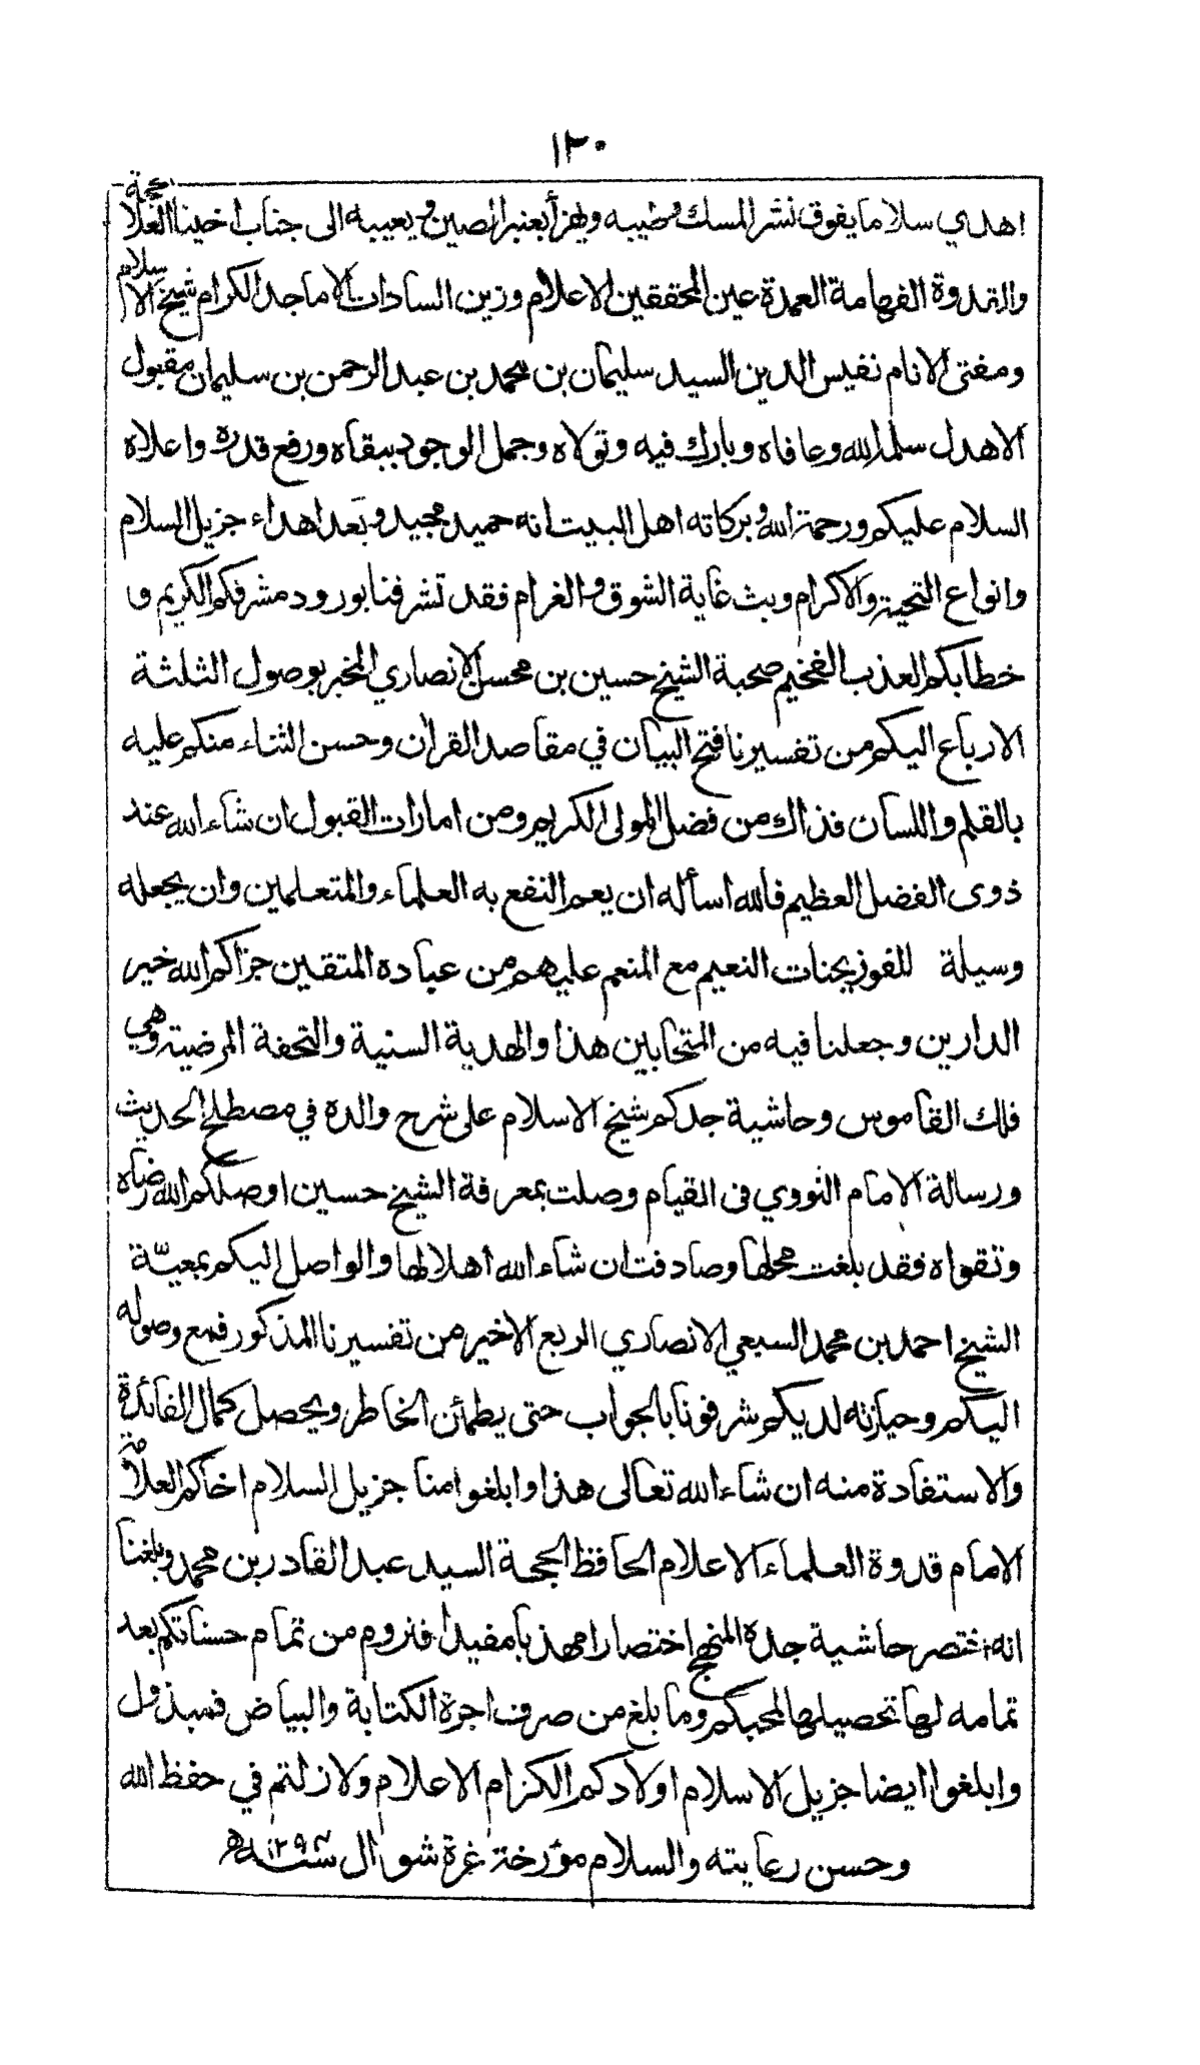 ١٣٠
اهدي سلاما يفوق نشر المسك وطيبه ويهزأ بعنبر الصين ويعيبه الى جناب اخينا العلامة
والقدوة الفهامة العمدة عين المحققين الاعلام وزين السادات الاماجد الكرام شيخ الاسلام
ومفتى الانام نفيس الدين السيد سليمان بن محمد بن عبد الرحمن بن سليمان مقبول
الاهدل سلمه الله وعافاه وبارك فيه وتولاه وجمل الوجود ببقاه ورفع قدره واعلاه
السلام عليكم ورحمة الله وبركاته اهل البيت انه حميد مجيد وبعد اهداء جزيل السلام
وانواع التحية والاكرام وبث غاية الشوق والغرام فقد تشرفنا بورود مشرفكم الكريم و
خطابكم العذب الفخيم صحبة الشيخ حسين بن محسن الانصاري المخبر بوصول الثلثة
الارباع اليكم من تفسيرنا فتح البيان في مقاصد القران وحسن الثناء منكم عليه
بالقلم واللسان فذاك من فضل المولى الكريم ومن امارات القبول ان شاء الله عند
ذوى الفضل العظيم فالله اسأله ان يعم النفع به العلماء والمتعلمين وان يجعله
وسيلة للفوز بجنات النعيم مع المنعم عليهم من عباده المتقين جزاكم الله خير
الدارين وجعلنا فيه من المتحابين هذا والهدية السنية والتحفة المرضية وهي
فلك القاموس وحاشية جدكم شيخ الاسلام على شرح والده في مصطلح الحديث
ورسالة الامام النووي فى القيام وصلت بمعرفة الشيخ حسين اوصلكم الله رضاه
وتقواه فقد بلغت محلها وصادفت ان شاء الله اهلا لها والواصل اليكم بمعيّة
الشيخ احمد بن محمد السبعي الانصاري الربع الاخير من تفسيرنا المذكور فمع وصوله
اليكم وحيازته لديكم شرفونا بالجواب حتى يطمئن الخاطر ويحصل كمال الفائدة
والاستفادة منه ان شاء الله تعالى هذا وابلغوا منا جزيل السلام اخاكم العلامة
الامام قدوة العلماء الاعلام الحافظ الحجة السيد عبد القادر بن محمد وبلغنا
انه اختصر حاشية جده المنهج اختصارا مهذبا مفيدا فنروم من تمام حسناتكم بعد
تمامه لها تحصيلها لمحبكم وما بلغ من صرف اجرة الكتابة والبياض فمبذول
وابلغوا ايضا جزيل الاسلام اولادكم الكرام الاعلام ولا زلتم في حفظ الله
وحسن رعايته والسلام مؤرخة غرة شوال سنه ١٢٩٣ه